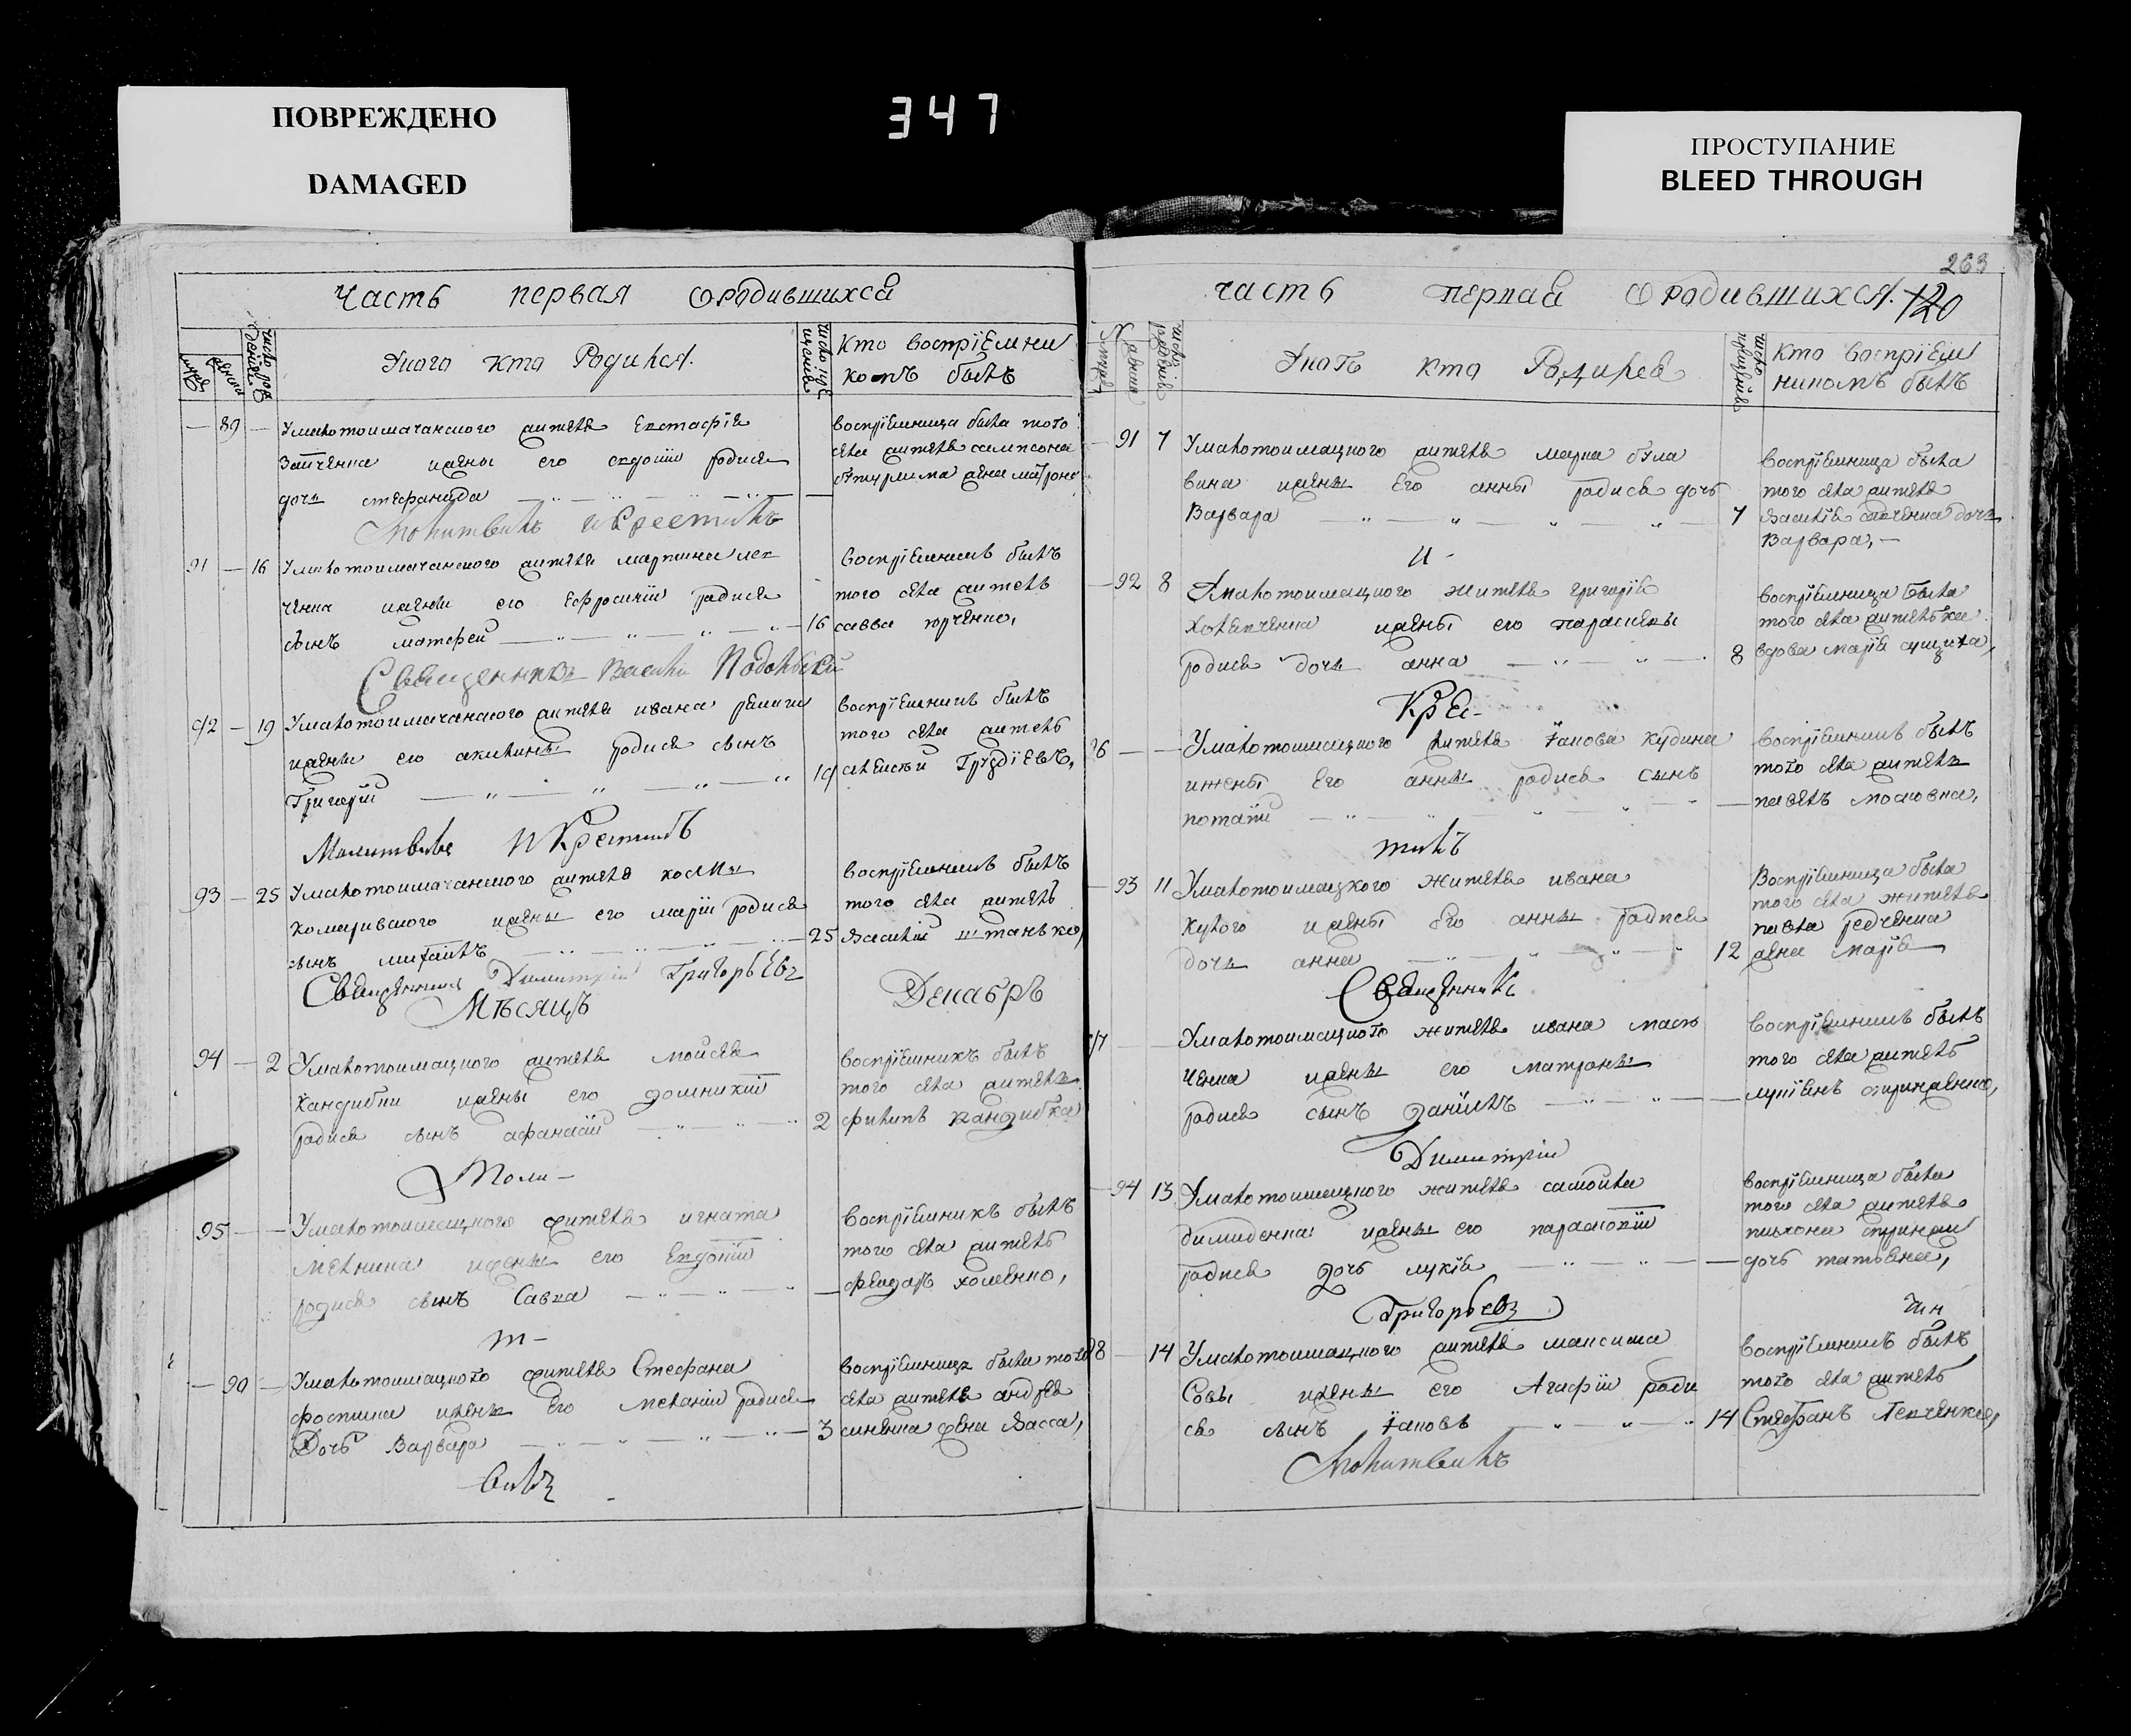 ПОВРЕЖДЕНО
DAMAGED
347
ПРОСТУПАНИЕ
BLEED THROUGH
Часть первая ородившихся
Укого кто Родился.
Кто воспріемни
комъ былъ
89 Умалотоимачанского жителя Евстафія
жены его родися
дочь стефанида
воспріемница была того
села жителя сампсона
жена матрона
Молитвилъ и Крестилъ
91 16 Умалотоимачанского жителя мартина лев
ченка жены его Ефросиніи родися
сынъ матфей 16
воспріемникъ былъ
того села житель
савва юрченко,
Священникъ Василій Подольскій
92 19 Умалотоимачанского жителя ивана
жены его акилины родися сынъ
Григорій 19
воспріемникъ былъ
того села житель
алексѣй
Молитвилъ И Крестилъ
93 25 Умалотоимачанского жителя космы
комаривского жены его маріи родися
сынъ михаилъ 25
воспріемникъ былъ
того села житель
Василій штанько,
Священникъ Димитрій Григорьевъ
Мѣсяцъ Декабрь
94 2 Умалотоимацкого жителя мойсея
Кандибки жены его домникіи
родися сынъ афанасій 2
воспріемникъ былъ
того села житель
филипъ кандибка
Моли-
95 Умалотоимацкого жителя игната
мелника жены его Евдокіи
родися сынъ Савва
воспріемникъ былъ
того села житель
феодоръ хоменко,
т-
90 Умалотоимацкого жителя Стефана
фостика жены Его меланіи родися
Дочь Варвара 3
воспріемница была того
села жителя андрея
жена Васса,
вилъ
263
часть первая ородившихся. 120
Укого кто Родился
Кто воспріем
никомъ былъ
91 7 Умалотоимацкого жителя марка була
вина жены Его анны родися дочь
Варвара 7
воспріемница была
того села жителя
Василія дочь
Варвара,
И-
92 8 Умалотоимацкого жителя григорія
жены его параскевы
родися дочь анна 8
воспріемница была
того села жителька
вдова марія
Кре-
96 Умалотоимацкого жителя Іакова Кудина
ижены Его анны родися сынъ
потапій
воспріемникъ былъ
того села житель
павелъ московка,
тилъ
93 11 Умалотоимацкого жителя ивана
Куцого жены Его анны родися
дочь анна 12
Воспріемница была
того села жителя
павла редченка
жена марія
Священникъ
97 Умалотоимацкого жителя ивана маст
ченка жены его матроны
родися сынъ даніилъ
воспріемникъ былъ
того села житель
Димитрій
94 13 Умалотоимацкого жителя самойла
димиденка жены его параскевіи
родися дочь лукія
воспріемница была
того села жителя
дочь татьяна,
Григорьевъ
98 14 Умалотоимацкого жителя максима
Совы жены его Агафіи роди
ся сынъ Іаковъ 14
воспріемникъ былъ
того села житель
Стефанъ Левченко,
Молитвилъ